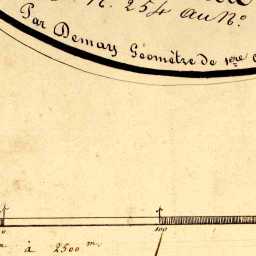 N. 254 au N°
Par Demay Géomètre de 1ère
0 100
à 2500 m.